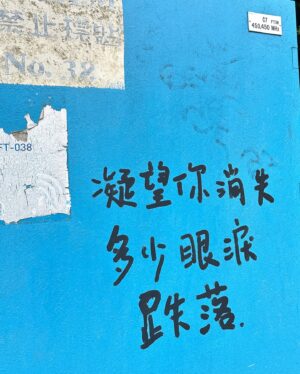 C7 FTNS
450,450 MHz
禁止標貼
No. 32
FT-038
凝望你消失
多少眼淚
跌落.